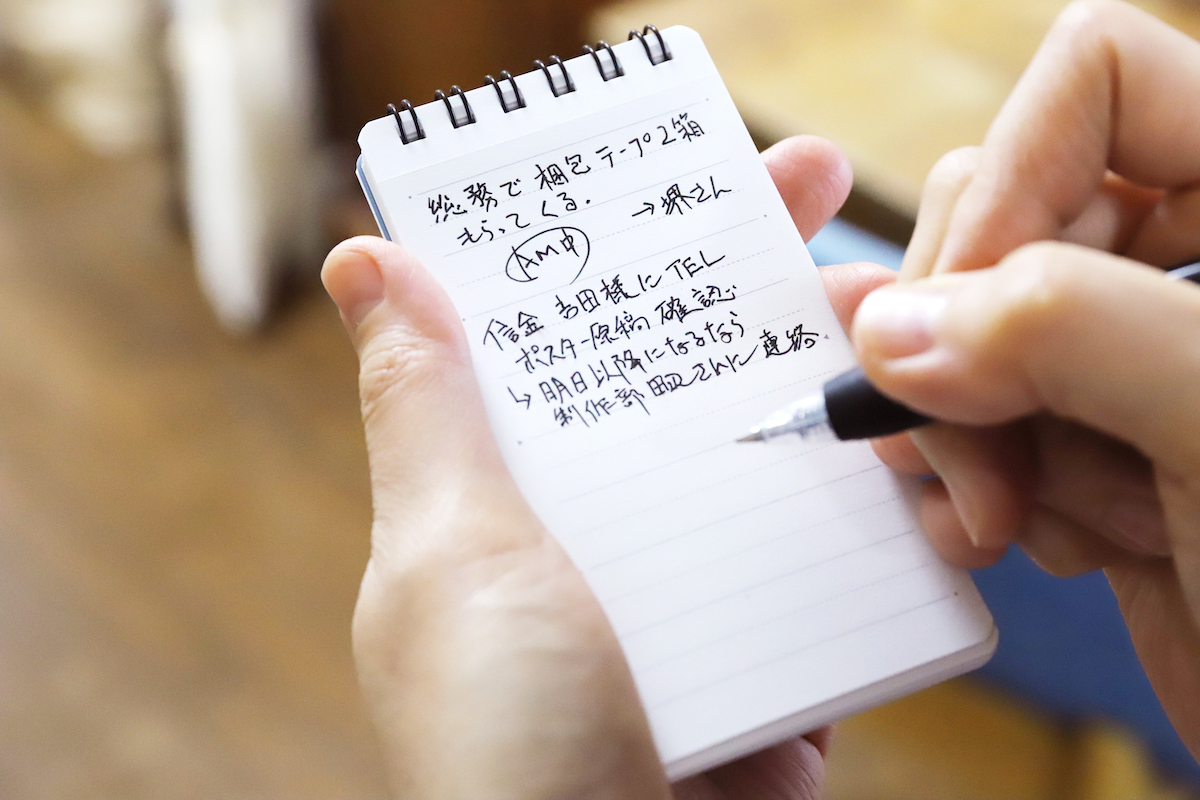 総務で 梱包テープ2箱
もらってくる. →堺さん
AM中
信金 吉田様にTEL
ポスター原稿 確認
↳明日以降になるなら
制作部 田辺さんに連絡.